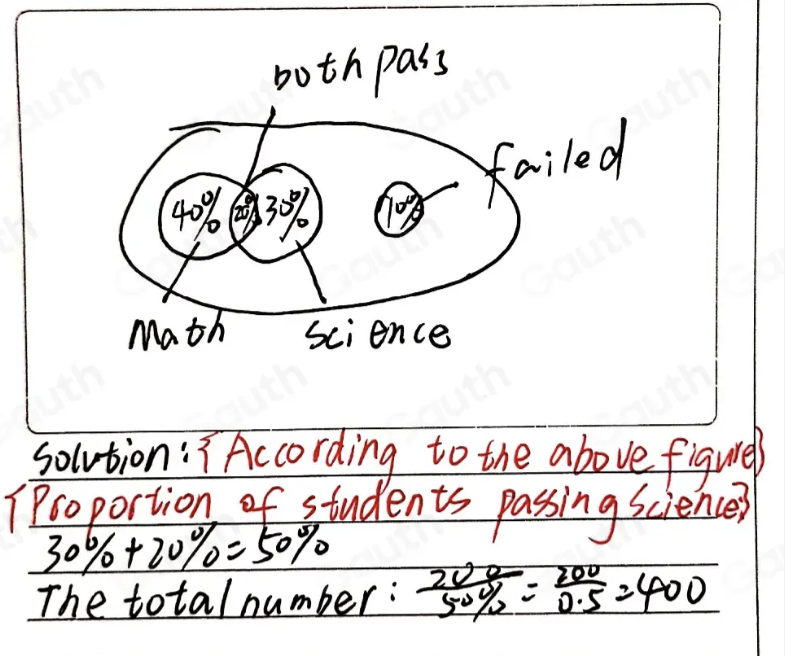 both pass
failed
40% 20% 30% 10%
Math science
Solution: {According to the above figure}
{Proportion of students passing Science}
30%+20%=50%
The total number: 200/50% = 200/0.5 = 400
Gauth